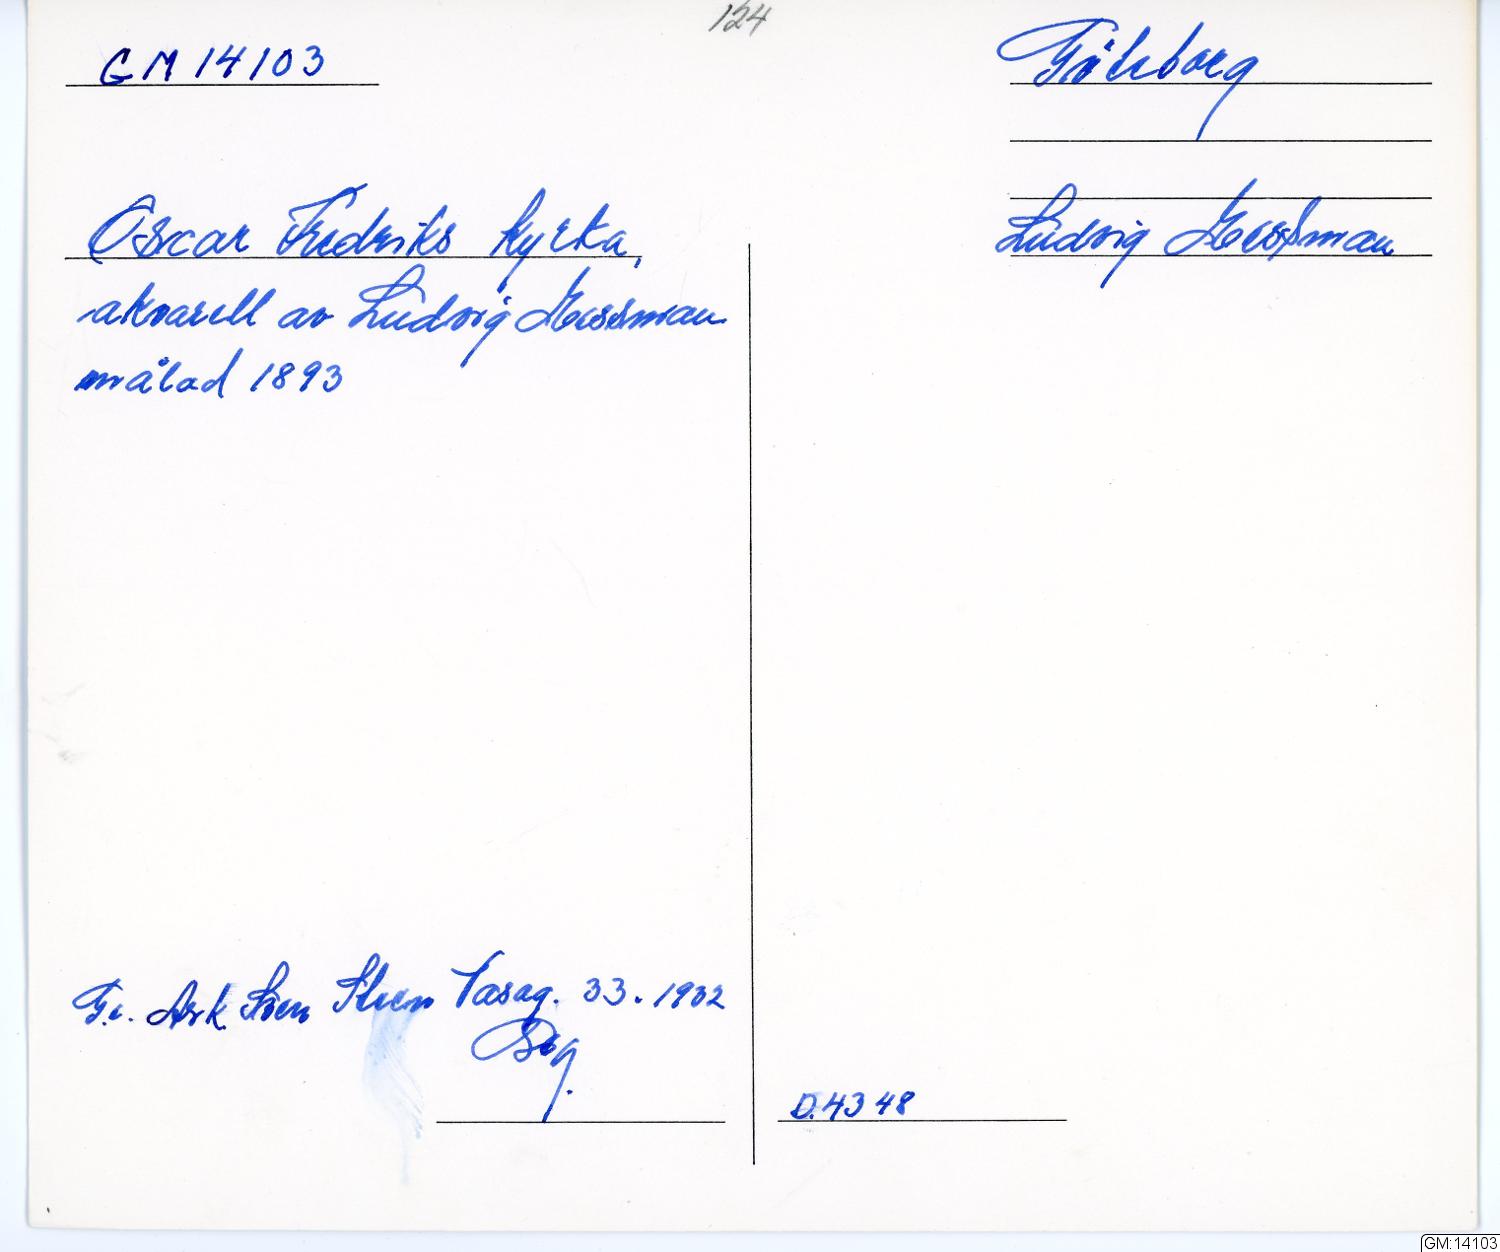 124
GM 14103
Göteborg
Oscar Fredriks kyrka,
Ludvig Messman
akvarell av Ludvig Messman
målad 1893
Ark. Sven Steen Vasag. 33. 1932
D.4348
GM:14103